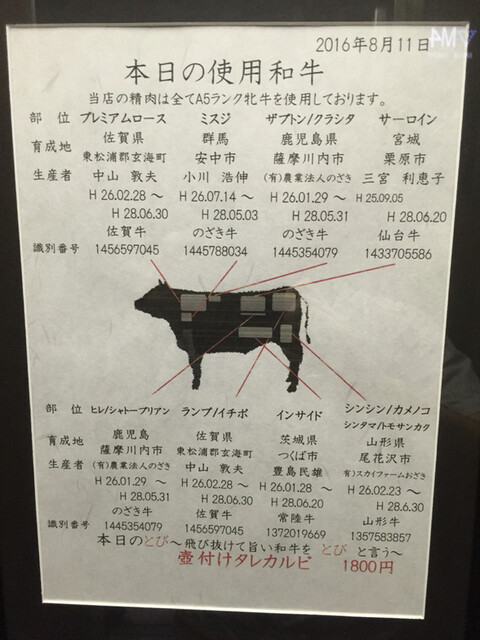 2016年8月11日
本日の使用和牛
当店の精肉は全てA5ランク牝牛を使用しております。
部 位 プレミアムロース ミスジ ザブトン/クラシタ サーロイン
育成地 佐賀県 群馬 鹿児島県 宮城
東松浦郡玄海町 安中市 薩摩川内市 栗原市
生産者 中山 敦夫 小川 浩伸 (有)農業法人のざき 三宮 利恵子
H 26.02.28 ～ H 26.07.14 ～ H 26.01.29 ～ H 25.09.05
H 28.06.30 H 28.05.03 H 28.05.31 H 28.06.20
佐賀牛 のざき牛 のざき牛 仙台牛
識別番号 1456597045 1445788034 1445354079 1433705586
部 位 ヒレ/シャトーブリアン ランプ/イチボ インサイド シンシン/カメノコ
シンタマ/トモサンカク
育成地 鹿児島 佐賀県 茨城県 山形県
薩摩川内市 東松浦郡玄海町 つくば市 尾花沢市
生産者 (有)農業法人のざき 中山 敦夫 豊島民雄 有)スカイファームおざき
H 26.01.29 ～ H 26.02.28 ～ H 26.01.28 ～ H 26.02.23 ～
H 28.05.31 H 28.06.30 H 28.06.20 H 28.6.30
のざき牛 佐賀牛 常陸牛 山形牛
識別番号 1445354079 1456597045 1372019669 1357583857
本日のとび～飛び抜けて旨い和牛を とび と言う～
壺付けタレカルビ 1800円